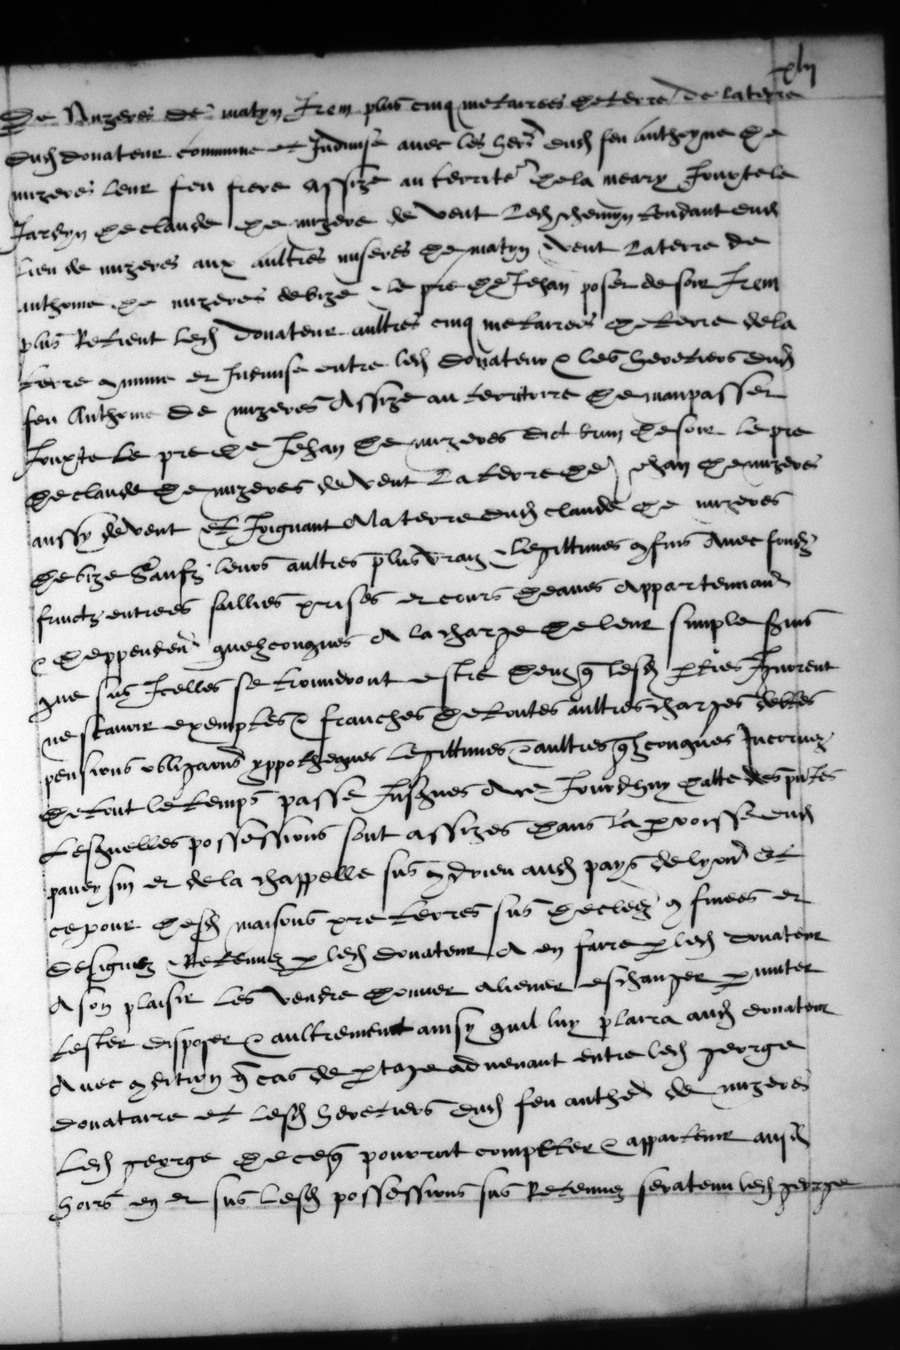 xlii
De Nuzeres de matyn Item plus cinq mectairees de terre de la terre
dud donateur commune et Indivise avec les hers dud feu anthoyne de
nuzeres leur feu frere assize au territe de la neary Jouxte le
Jardyn de claude de nuzere de vent Led chemyn tendant dud
lieu de nuzeres aux aultres nuseres de matyn vent La terre de
anthoine de nuzeres de bize le pre de Jehan poser de soir Item
plus Retient led donateur aultres cinq mectairees de terre de la
terre comune et Indivise entre led donateur & les heretiers dud
feu Anthoine de nuzeres Assize au territoire de maupasser
Jouxte le pre de Jehan de nuzeres dict brun de soir le pre
de claude de nuzeres de vent La terre de Jehan de nuzeres
aussy de vent et Joignant A la terre dud claude de nuzeres
de bize Saufz leurs aultres plus vraiz & legittimes confins Avec fondz
fructz entrees saillies prises et cours deaues Appartenand
& deppenden quelzconques A la charge de leur simple servis
que sus Icelles se trouveront estre deuz que lesd parties Ignorent
ne scavoir exemptes & franches de toutes aultres charges debtes
pensions obligaons yppotheques legittimes & aultres quelconques Incoruz
de tout le temps passe Jusques A ce Jourdhuy datte des pntes
Lesquelles possessions sont assizes dans La parroisse dud
paveysin et de la chappelle sus condrieu aud pays de lyon Et
ce pour desd maisons pre terres sus declez confinees et
designez Retenuz par led donateur A en faire par led donateur
A son plaisir les vendre donner aliener eschanger permuter
tester disposer & aultrement ainsy quil luy plaira aud donateur
Avec condition que cas de partage advenant entre led george
donataire et lesd heretiers dud feu anthe de nuzeres
Led george de ce que pourroit compecter & appartenir ausd
hoirs en et sus lesd possessions sus Retenuz sera tenu led george